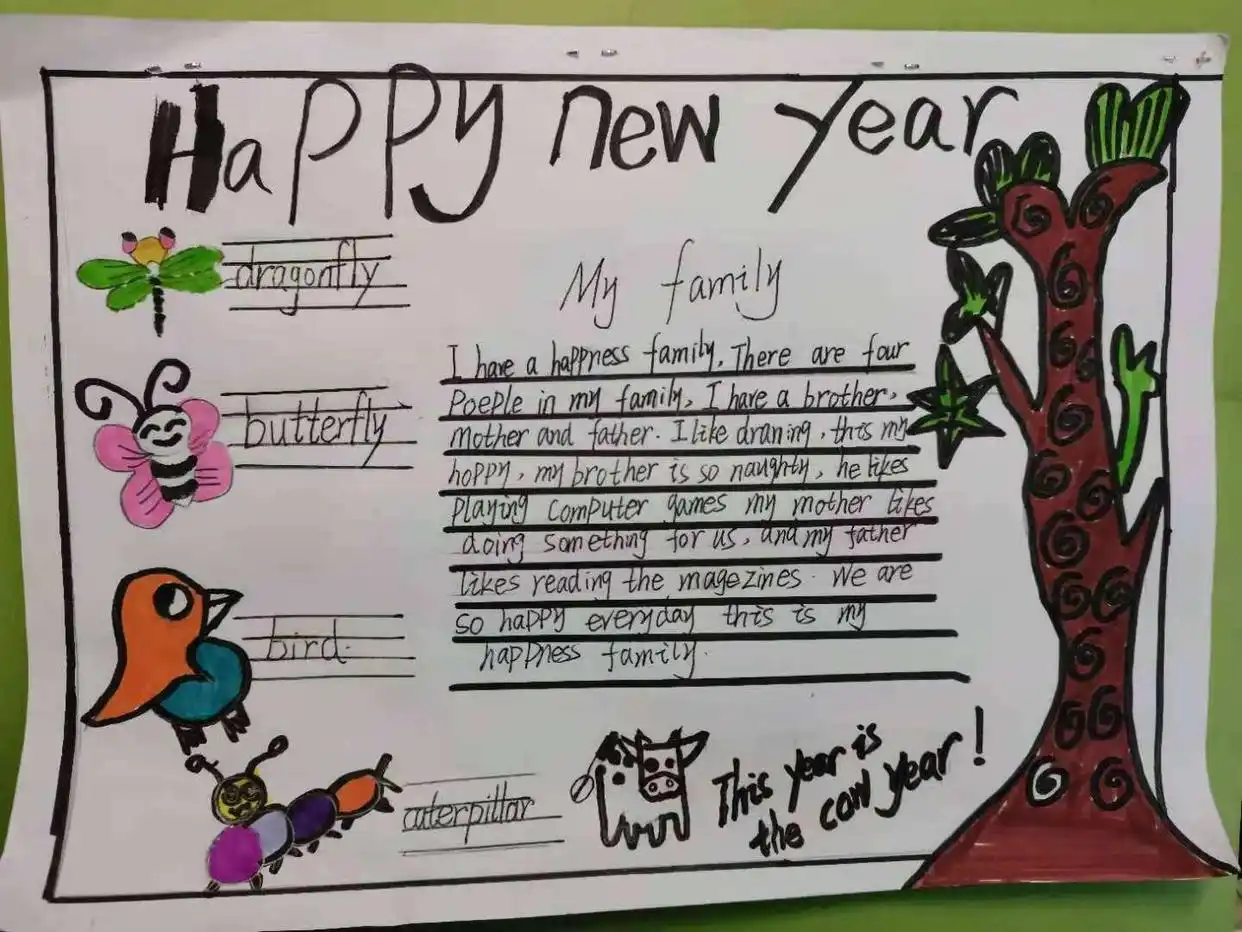 Happy new year
dragonfly
butterfly
bird.
caterpillar
My family
I have a happness family. There are four
Poeple in my family. I have a brother.
mother and father. I like draning, this my
hoppy, my brother is so naughty, he likes
playing computer games my mother likes
doing something for us, and my father
likes reading the magezines. We are
so happy everyday this is my
happness family.
This year is
the cow year!